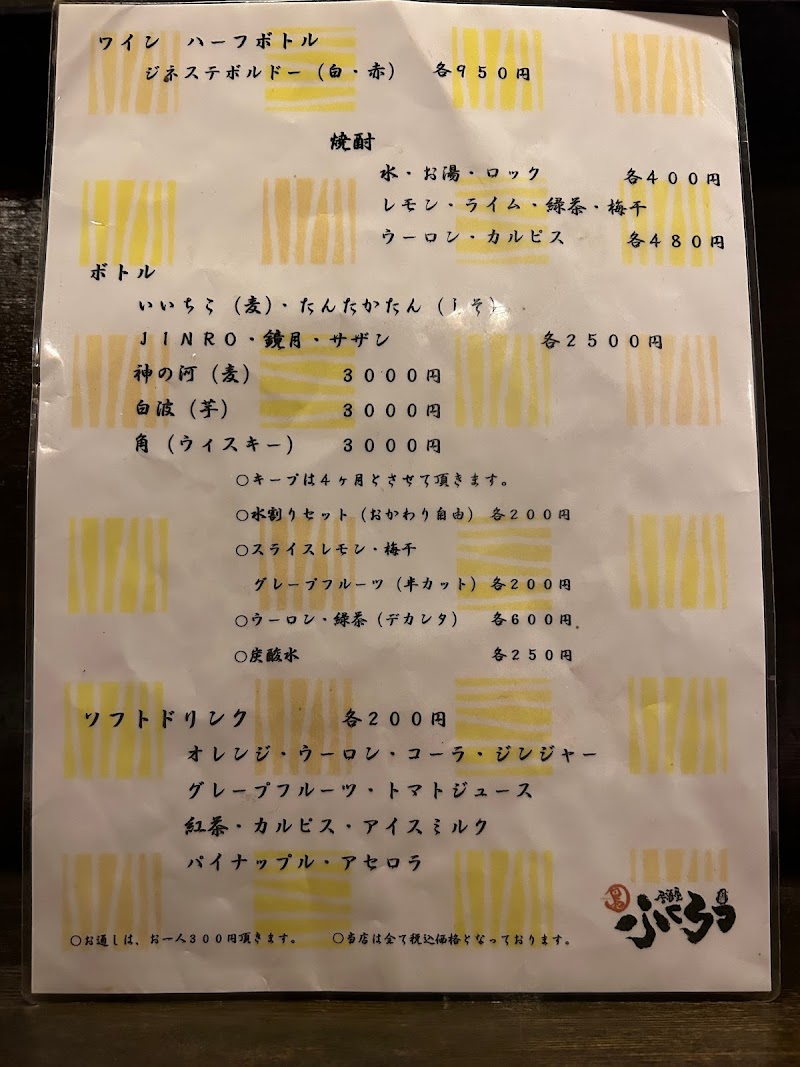 ワイン ハーフボトル
ジネステボルドー（白・赤） 各９５０円
焼酎
水・お湯・ロック 各４００円
レモン・ライム・緑茶・梅干
ウーロン・カルピス 各４８０円
ボトル
いいちこ（麦）・たんたかたん（しそ）・
ＪＩＮＲＯ・鏡月・サザン 各２５００円
神の河（麦） ３０００円
白波（芋） ３０００円
角（ウィスキー） ３０００円
○キープは４ヶ月とさせて頂きます。
○水割りセット（おかわり自由） 各２００円
○スライスレモン・梅干
グレープフルーツ（半カット） 各２００円
○ウーロン・緑茶（デカンタ） 各６００円
○炭酸水 各２５０円
ソフトドリンク 各２００円
オレンジ・ウーロン・コーラ・ジンジャー
グレープフルーツ・トマトジュース
紅茶・カルピス・アイスミルク
パイナップル・アセロラ
居酒屋
ふくろう
○お通しは、お一人３００円頂きます。 ○当店は全て税込価格となっております。